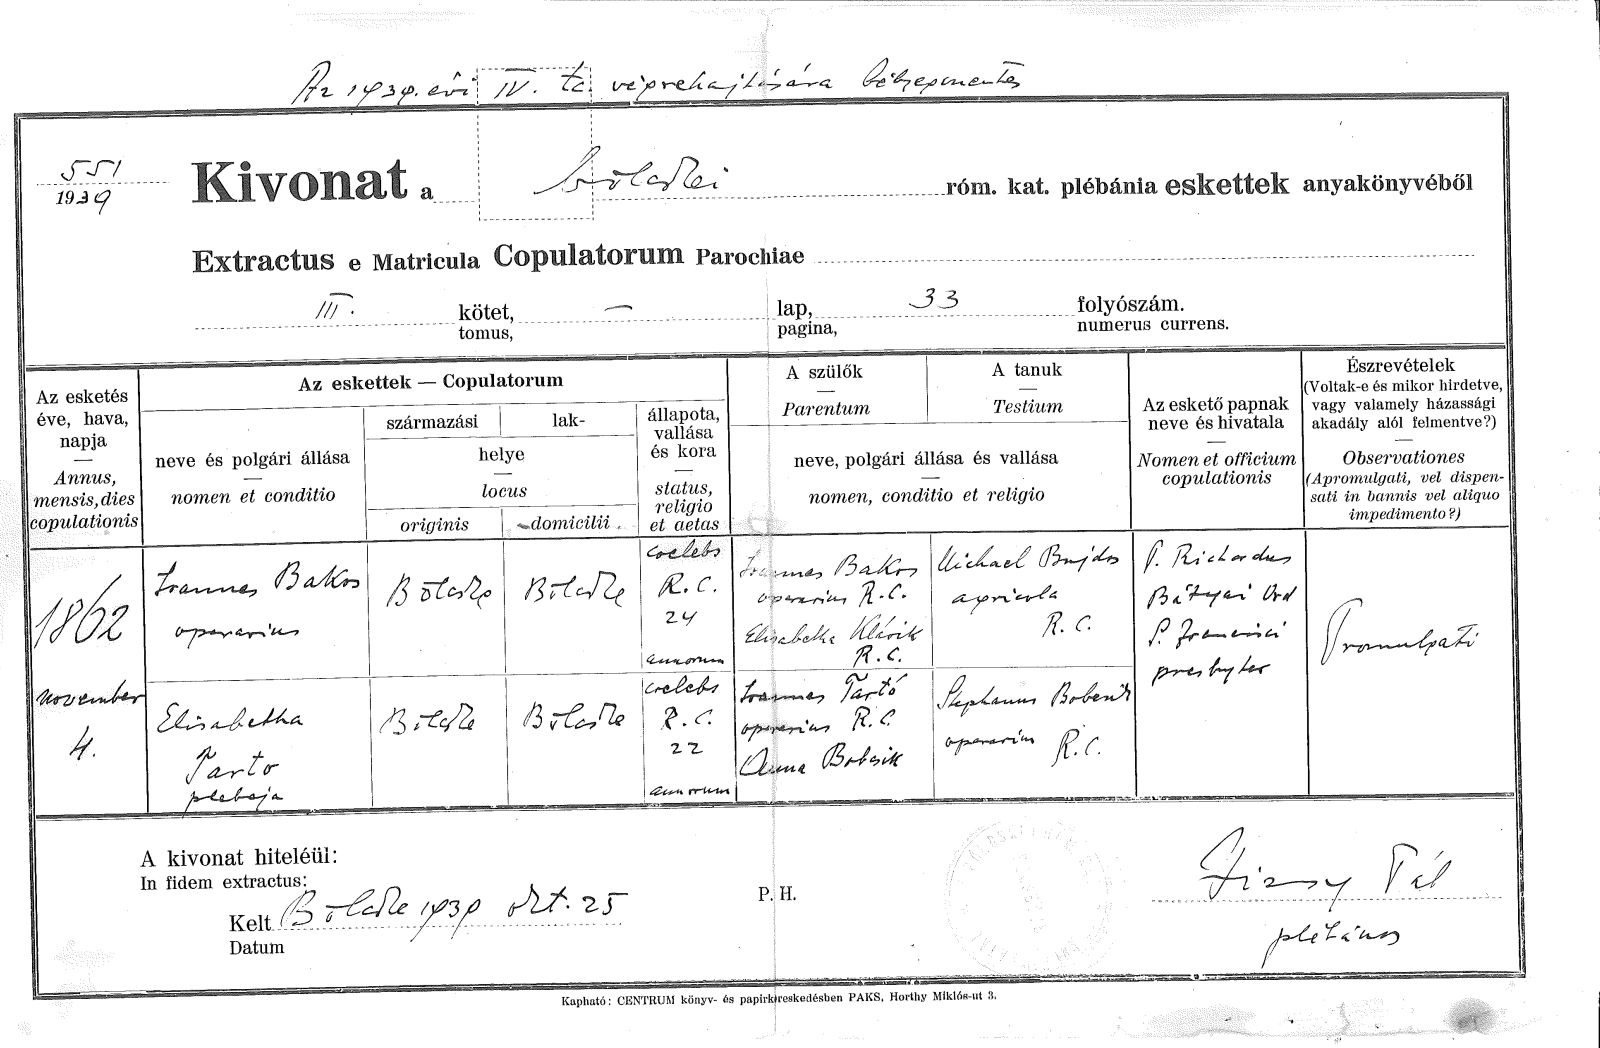 Az 1939. évi IV. tc. végrehajtására bélyegmentes
551
1939
Kivonat a bölcskei róm. kat. plébánia eskettek anyakönyvéből
Extractus e Matricula Copulatorum Parochiae
III. kötet, — lap, 33 folyószám.
tomus, pagina, numerus currens.
Az esketés éve, hava, napja
—
Annus, mensis, dies copulationis
Az eskettek — Copulatorum
neve és polgári állása
—
nomen et conditio
származási lak-
helye
—
locus
originis domicilii
állapota, vallása és kora
—
status, religio et aetas
A szülők
—
Parentum
A tanuk
—
Testium
neve, polgári állása és vallása
—
nomen, conditio et religio
Az eskető papnak neve és hivatala
—
Nomen et officium copulationis
Észrevételek
(Voltak-e és mikor hirdetve, vagy valamely házassági akadály alól felmentve?)
—
Observationes
(Apromulgati, vel dispensati in bannis vel aliquo impedimento?)
1862
november
4.
Ioannes Bakos
operarius
Bölcske
Bölcske
coelebs
R. C.
24
annorum
Ioannes Bakos
operarius R. C.
Elisabetha Klárik
R. C.
Michael Bujdos
agricola
R. C.
P. Richardus
Bátyai Ord
S. Francisci
presbyter
Promulgati
Elisabetha
Tarto
plebeja
Bölcske
Bölcske
coelebs
R. C.
22
annorum
Ioannes Tartó
operarius R. C.
Anna Bobcsik
Stephanus
operarius R. C.
A kivonat hiteléül:
In fidem extractus:
Kelt Bölcske 1939 okt. 25
Datum
P. H.
Pál
plébános
Kapható: CENTRUM könyv- és papirkereskedésben PAKS, Horthy Miklós-ut 3.